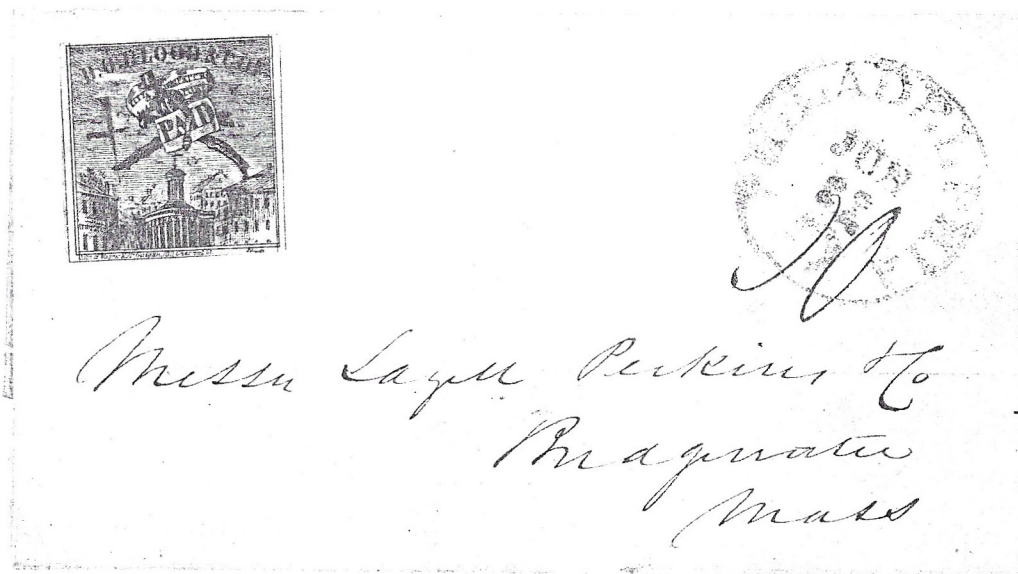 D.O. BLOOD & Co.
PAID
PHILADELPHIA
JUN
10
Messrs Lazell Perkins & Co
Bridgewater
Mass